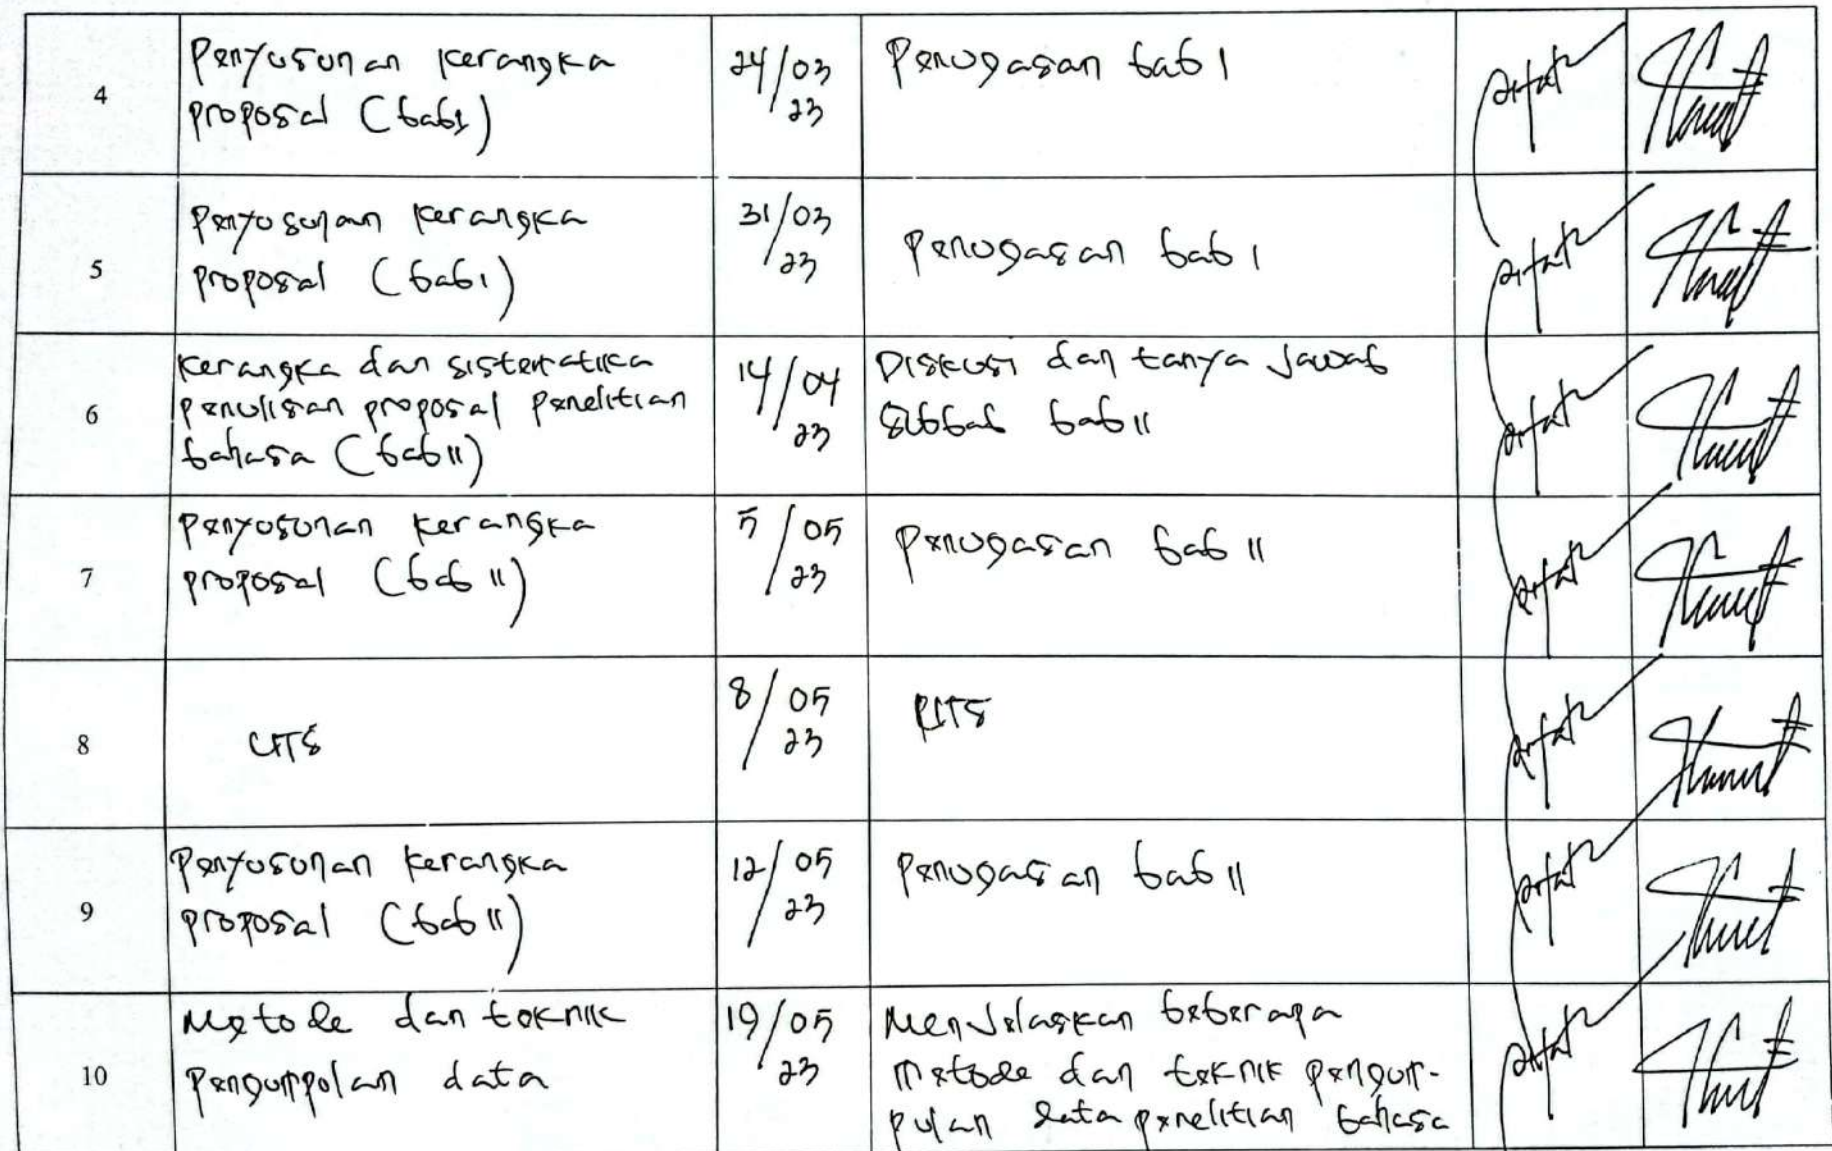 4
Penyusunan kerangka
proposal (bab I)
24/03
23
Penugasan bab I
5
Penyusunan kerangka
proposal (bab I)
31/03
23
Penugasan bab I
6
Kerangka dan sistematika
penulisan proposal penelitian
bahasa (bab II)
14/04
23
Diskusi dan tanya jawab
subbab bab II
7
Penyusunan kerangka
proposal (bab II)
5/05
23
Penugasan bab II
8
UTS
8/05
23
UTS
9
Penyusunan kerangka
proposal (bab II)
12/05
23
Penugasan bab II
10
Metode dan teknik
pengumpulan data
19/05
23
Menjelaskan beberapa
metode dan teknik pengum-
pulan data penelitian bahasa